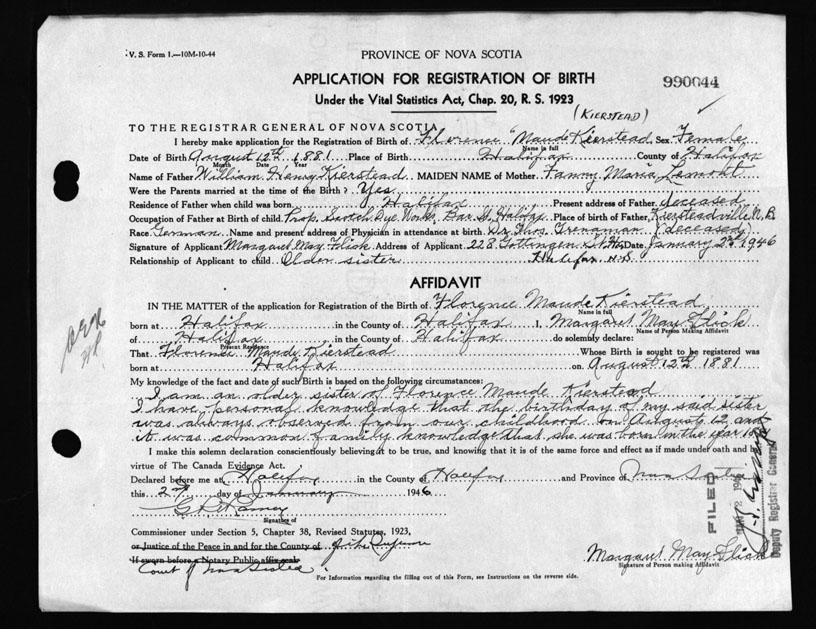 V. S. Form 1.—10M-10-44
PROVINCE OF NOVA SCOTIA
APPLICATION FOR REGISTRATION OF BIRTH
990044
Under the Vital Statistics Act, Chap. 20, R. S. 1923
(KIERSTEAD)
TO THE REGISTRAR GENERAL OF NOVA SCOTIA
I hereby make application for the Registration of Birth of Florence Maude Kierstead Sex Female
Name in full
Date of Birth August 12th 1881 Place of Birth Halifax County of Halifax
Month Date Year
Name of Father William Henry Kierstead MAIDEN NAME of Mother Fanny Maria
Were the Parents married at the time of the Birth? Yes
Residence of Father when child was born Halifax Present address of Father deceased
Occupation of Father at Birth of child Prop. Scotch Dye Works, Bar. St. Halifax Place of birth of Father Kiersteadville N.B.
Race German Name and present address of Physician in attendance at birth Dr. Thos. (deceased)
Signature of Applicant Margaret May Flick Address of Applicant 228 Gottingen St. Date January 2nd 1946
Relationship of Applicant to child Older sister Halifax N.S.
AFFIDAVIT
IN THE MATTER of the application for Registration of the Birth of Florence Maude Kierstead
Name in full
born at Halifax in the County of Halifax I, Margaret May Flick
Name of Person making Affidavit
of Halifax in the County of Halifax do solemnly declare:
Present Residence
That Florence Maude Kierstead Whose Birth is sought to be registered was
born at Halifax on August 12th 1881
My knowledge of the fact and date of such Birth is based on the following circumstances:
I am an older sister of Florence Maude Kierstead
I have personal knowledge that the birthday of my said sister
was always observed from our childhood on August 12 and
it was common family knowledge that she was born in the year
I make this solemn declaration conscientiously believing it to be true, and knowing that it is of the same force and effect as if made under oath and by
virtue of The Canada Evidence Act.
Declared before me at Halifax in the County of Halifax and Province of Nova Scotia
this 2nd day of January 1946
Signature of
Commissioner under Section 5, Chapter 38, Revised Statutes, 1923,
or Justice of the Peace in and for the County of the Supreme
If sworn before a Notary Public affix seal
Court of Nova Scotia
Margaret May Flick
Signature of Person making Affidavit
For Information regarding the filling out of this Form, see Instructions on the reverse side.
FILED
Deputy Registrar General